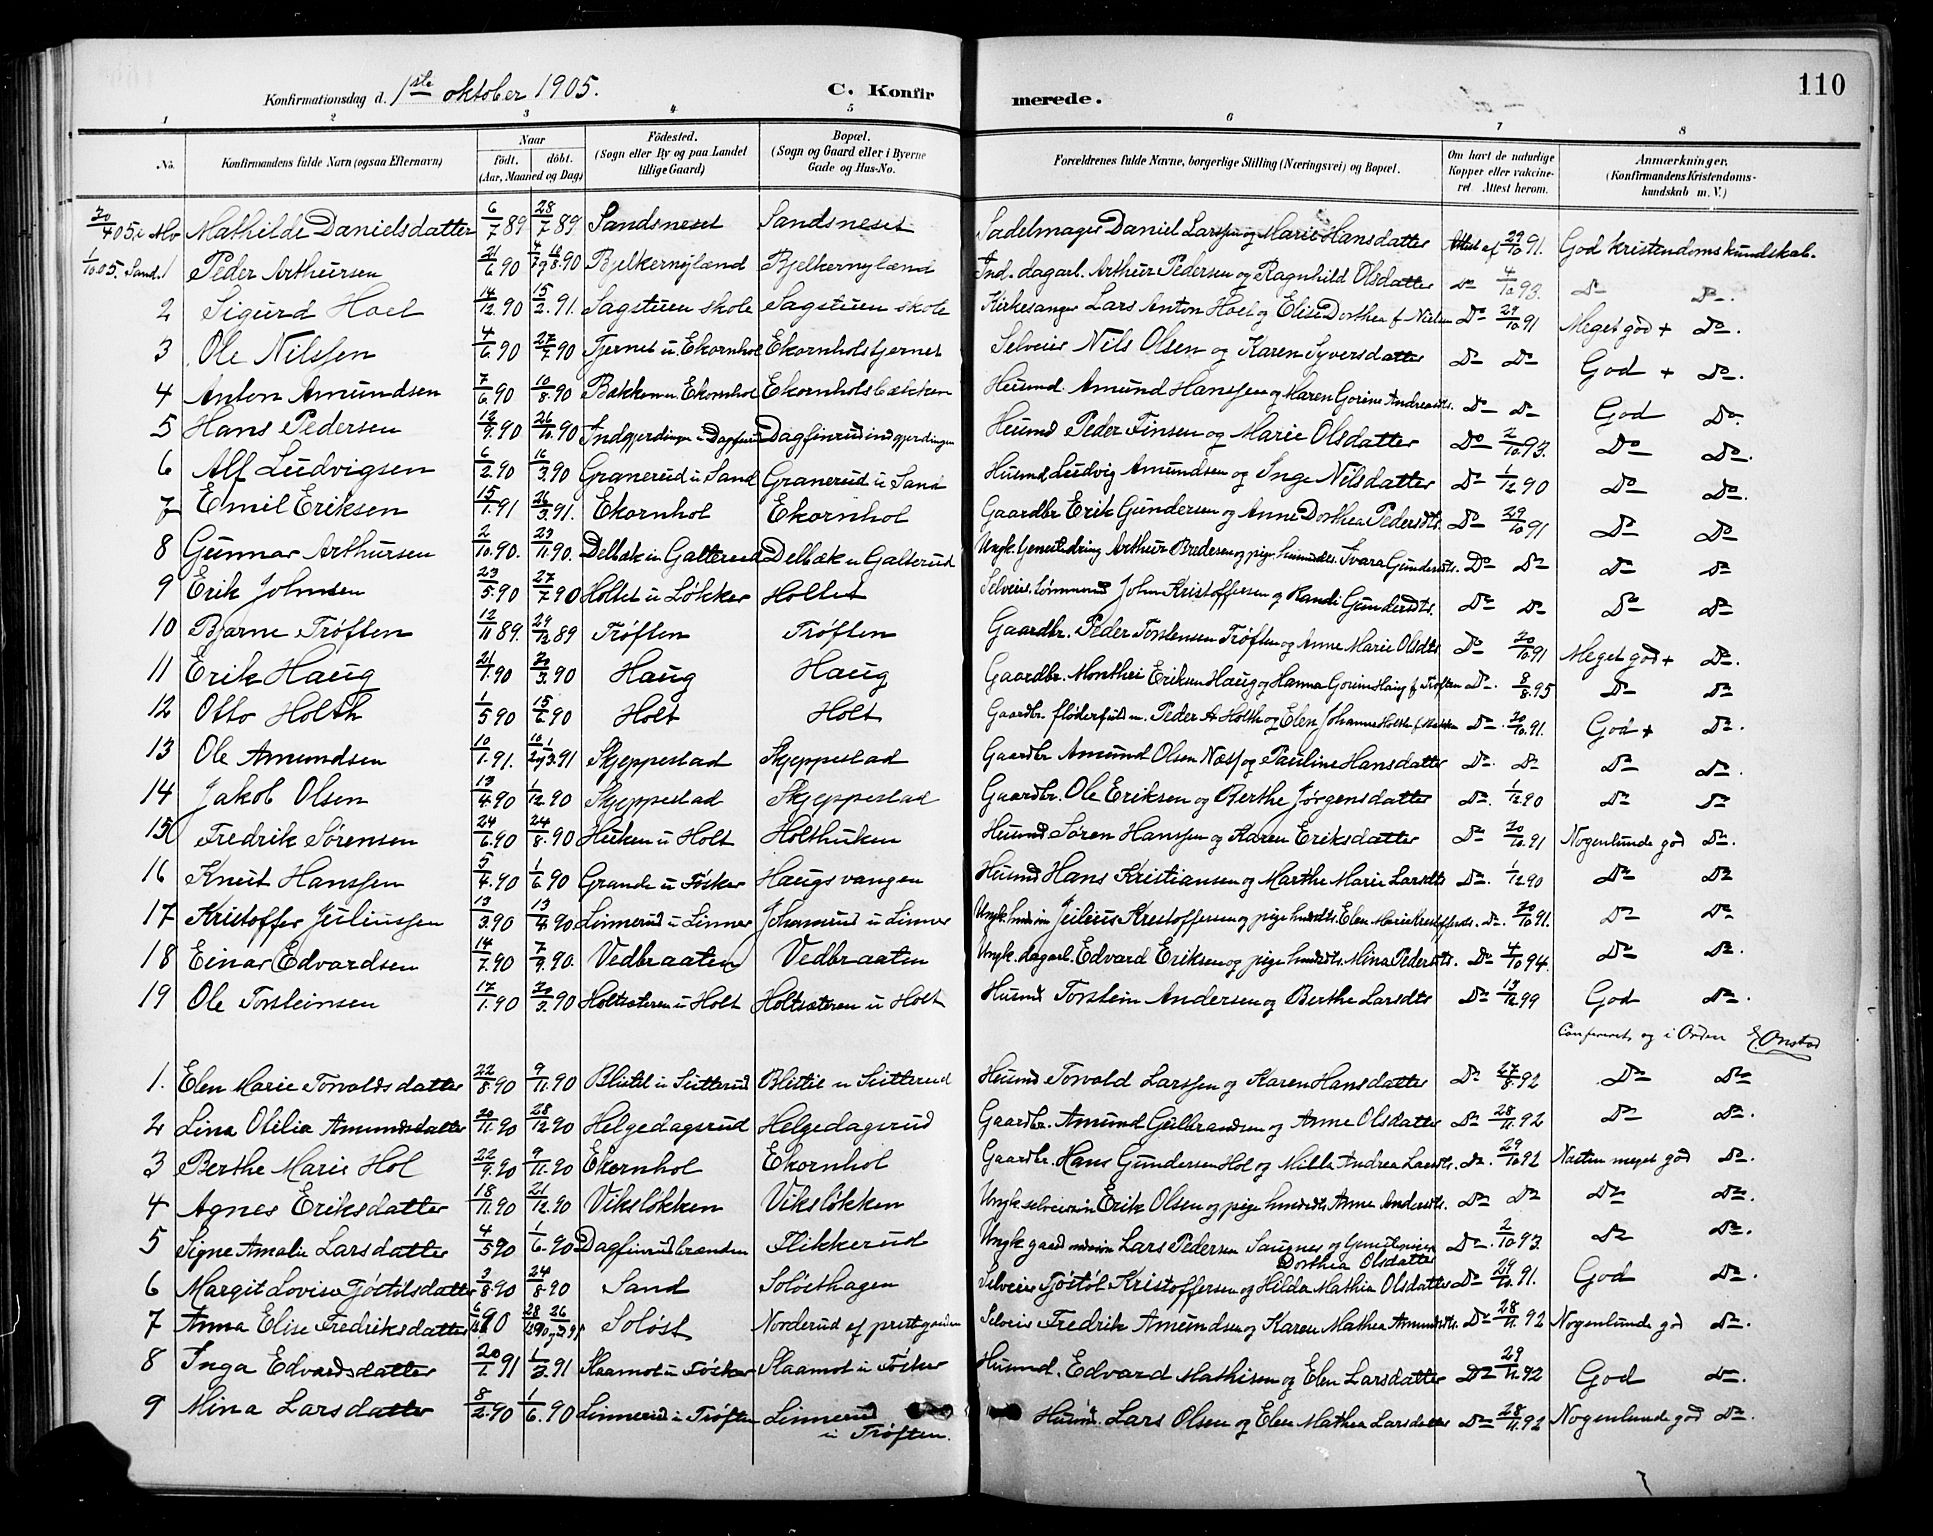 110
Konfirmationsdag d. 1ste oktober 1905. C. Konfirmerede.
1 2 3 4 5 6 7 8
No. Konfirmandens fulde Navn (ogsaa Efternavn) Naar født. døbt. (Aar, Maaned og Dag) Fødested. (Sogn eller By og paa Landet tillige Gaard) Bopæl. (Sogn og Gaard eller i Byerne Gade og Hus-No. Forældrenes fulde Navne, borgerlige Stilling (Næringsvei) og Bopæl. Om havt de naturlige Kopper eller vaccineret. Attest herom. Anmærkninger. (Konfirmandens Kristendomskundskab m. V.)
Mathilde Danielsdatter 6/7 89 28/7 89 Sandsneset Sandsneset Sadelmager Daniel Larssen og Marie Hansdatter Attest af 29/10 91. God kristendomskundskab.
1/10 05. Sand. 1 Peder Arthursen 21/6 90 Bjelkernyland Bjelkernyland Ind. dagarb. Arthur Pedersen og Ragnhild Olsdatter Do 4/10 93. Do Do.
2 Sigurd Hoel 14/12 90 15/2 91. Sagstuen skole Sagstuen skole Kirkesanger Lars Anton Hoel og Elise Dorthea f. Nielsen Do 29/10 91 Meget god + Do.
3 Ole Nilssen 4/6 90 27/7 90 Tjernet u. Ekornhol Ekornholstjernet Selveier Nils Olsen og Karen Syversdatter Do Do God + Do.
4 Anton Amundsen 7/6 90 10/8 90 Bækken u. Ekornhol Ekornholsbækken Husmd. Amund Hanssen og Karen Gorine Andreasdts. Do Do God Do.
5 Hans Pedersen 12/9 90 26/10 90 Indgjerdingen u. Dagfinrud Dagfinrudindgjerdingen Husmd Peder Finsen og Marie Olsdatter Do 2/10 93. Do Do.
6 Alf Ludvigsen 6/2 90 16/3 90 Granerud u Sand Granerud u Sand Husmd Ludvig Amundsen og Inge Nilsdatter Do 1/12 90 Do Do.
7 Emil Eriksen 15/1 91 26/3 91. Ekornhol Ekornhol Gaardbr Erik Gundersen og Anne Dorthea Pedersdts. Do 29/10 91 Do Do
8 Gunnar Arthursen 2/10 90. 23/11 90. Delbæk u Galterud Delbæk u Galterud Ungk. Arthur Bredesen og pige Ivara Gundersdts. Do Do Do Do
9 Erik Johnsen 23/5 90 27/7 90 Holtet u Løkker Holtet Selveier. tømmermd John Kristoffersen og Randi Gundersdts. Do Do Do Do
10 Bjarne Trøften 12/11 89. 29/12 89 Trøften Trøften Gaardbr. Peder Torstensen Trøften og Anne Marie Olsdts Do 20/10 91 Meget god + Do.
11 Erik Haug 21/1 90 Haug Haug Gaardbr. Monthei Eriksen Haug og Hanna Gorine Haug f. Trøften Do. 8/8 95 Do Do
12 Otto Holth 1/5 90 15/6 90 Holt Holt Gaardbr. fløderfuldm. Peder A Holth og Elen Johanne Holth Do. 20/10 91. God + Do.
13 Ole Amundsen 10/1 91. Skjeppestad Skjeppestad Gaardbr Amund Olsen Næss og Pauline Hansdatter Do. Do Do Do.
14 Jakob Olsen 13/4 90 1/12 90 Skjeppestad Skjeppestad Gaardbr. Ole Eriksen og Berthe Jørgensdatter Do. 1/12 90 Do Do
15 Fredrik Sørensen 24/6 90 24/8 90 Huken u Holt Holthuken Husmd Søren Hanssen og Karen Eriksdatter Do 20/10 91 Nogenlunde god Do.
16 Knut Hanssen 5/4 90 1/6 90 Grande u Fosker Haugsvangen Husmd Hans Kristiansen og Marthe Marie Larsdts Do. 1/12 90 Do Do
17 Kristoffer Juliussen 13/3 90 13/4 90 Linnerud u Linner Johnsrud u Linner Ungk. Julius Kristoffersen og pige Elen Marie Kristoffersdts. Do. 20/10 91. Do Do
18 Einar Edvardsen 14/7 90 7/9 90. Vedbraaten Vedbraaten Ungk. dagarb. Edvard Eriksen og pige husmdts. Mina Pedersdts. Do 4/10 94. Do Do.
19 Ole Torsteinsen 17/1 90 Holtsæteren u Holt Holtsæteren u Holt Husmd Torstein Andersen og Berthe Larsdts Do 13/11 99 God Do.
Confereret og i Orden E. Onstad
1. Elen Marie Torvaldsdatter 22/8 90 9/11 90 Blistil u Sutterud Blistil u Sutterud Husmd Torvald Larssen og Karen Hansdatter Do 27/8 92 Do Do
2 Lina Otilie Amundsdatter 20/11 90 28/12 90 Helgedagsrud Helgedagsrud Gaardbr. Amund Gulbrandsen og Anne Olsdatter Do 28/11 92 Do Do.
3 Berthe Marie Hol 22/9 90 9/11 90 Ekornhol Ekornhol Gaardbr. Hans Gundersen Hol og Milla Andrea Larsdts. Do. 29/10 92 Næsten meget god Do.
4 Agnes Eriksdatter 18/11 90 21/12 90 Vikslökken Vikslökken Ungk. selveiersøn Erik Olsen og pige husmdts. Anne Andersdts Do Do Do Do.
5 Signe Amalie Larsdatter 4/5 90 1/6 90 Dagfinrudbranden Flikkerud Ungk gaardmandssøn Lars Pedersen Saugnes og Dorthea Olsdatter Do. 2/10 93. Do Do.
6 Margit Lovise Tjöstölsdatter 3/8 90 24/8 90 Sand Soløsthagen Selveier Tjöstöl Kristoffersen og Hilda Mathia Olsdatter Do 29/10 91. God Do.
7 Anna Elise Fredriksdatter Soløst Norderud af prestgaarden Selveier Fredrik Amundsen og Karen Mathea Amundsdts. Do 28/11 92 Nogenlunde god Do.
8 Inga Edvardsdatter 20/1 91 1/3 91 Slaamot u Fosker Slaamot u Fosker Husmd. Edvard Mathisen og Elen Larsdatter Do 29/11 92 God Do.
9 Mina Larsdatter 8/2 90 1/6 90 Linnerud u Trøften Linnerud u Trøften. Husmd. Lars Olsen og Elen Mathea Larsdatter Do 28/11 92 Nogenlunde god Do.